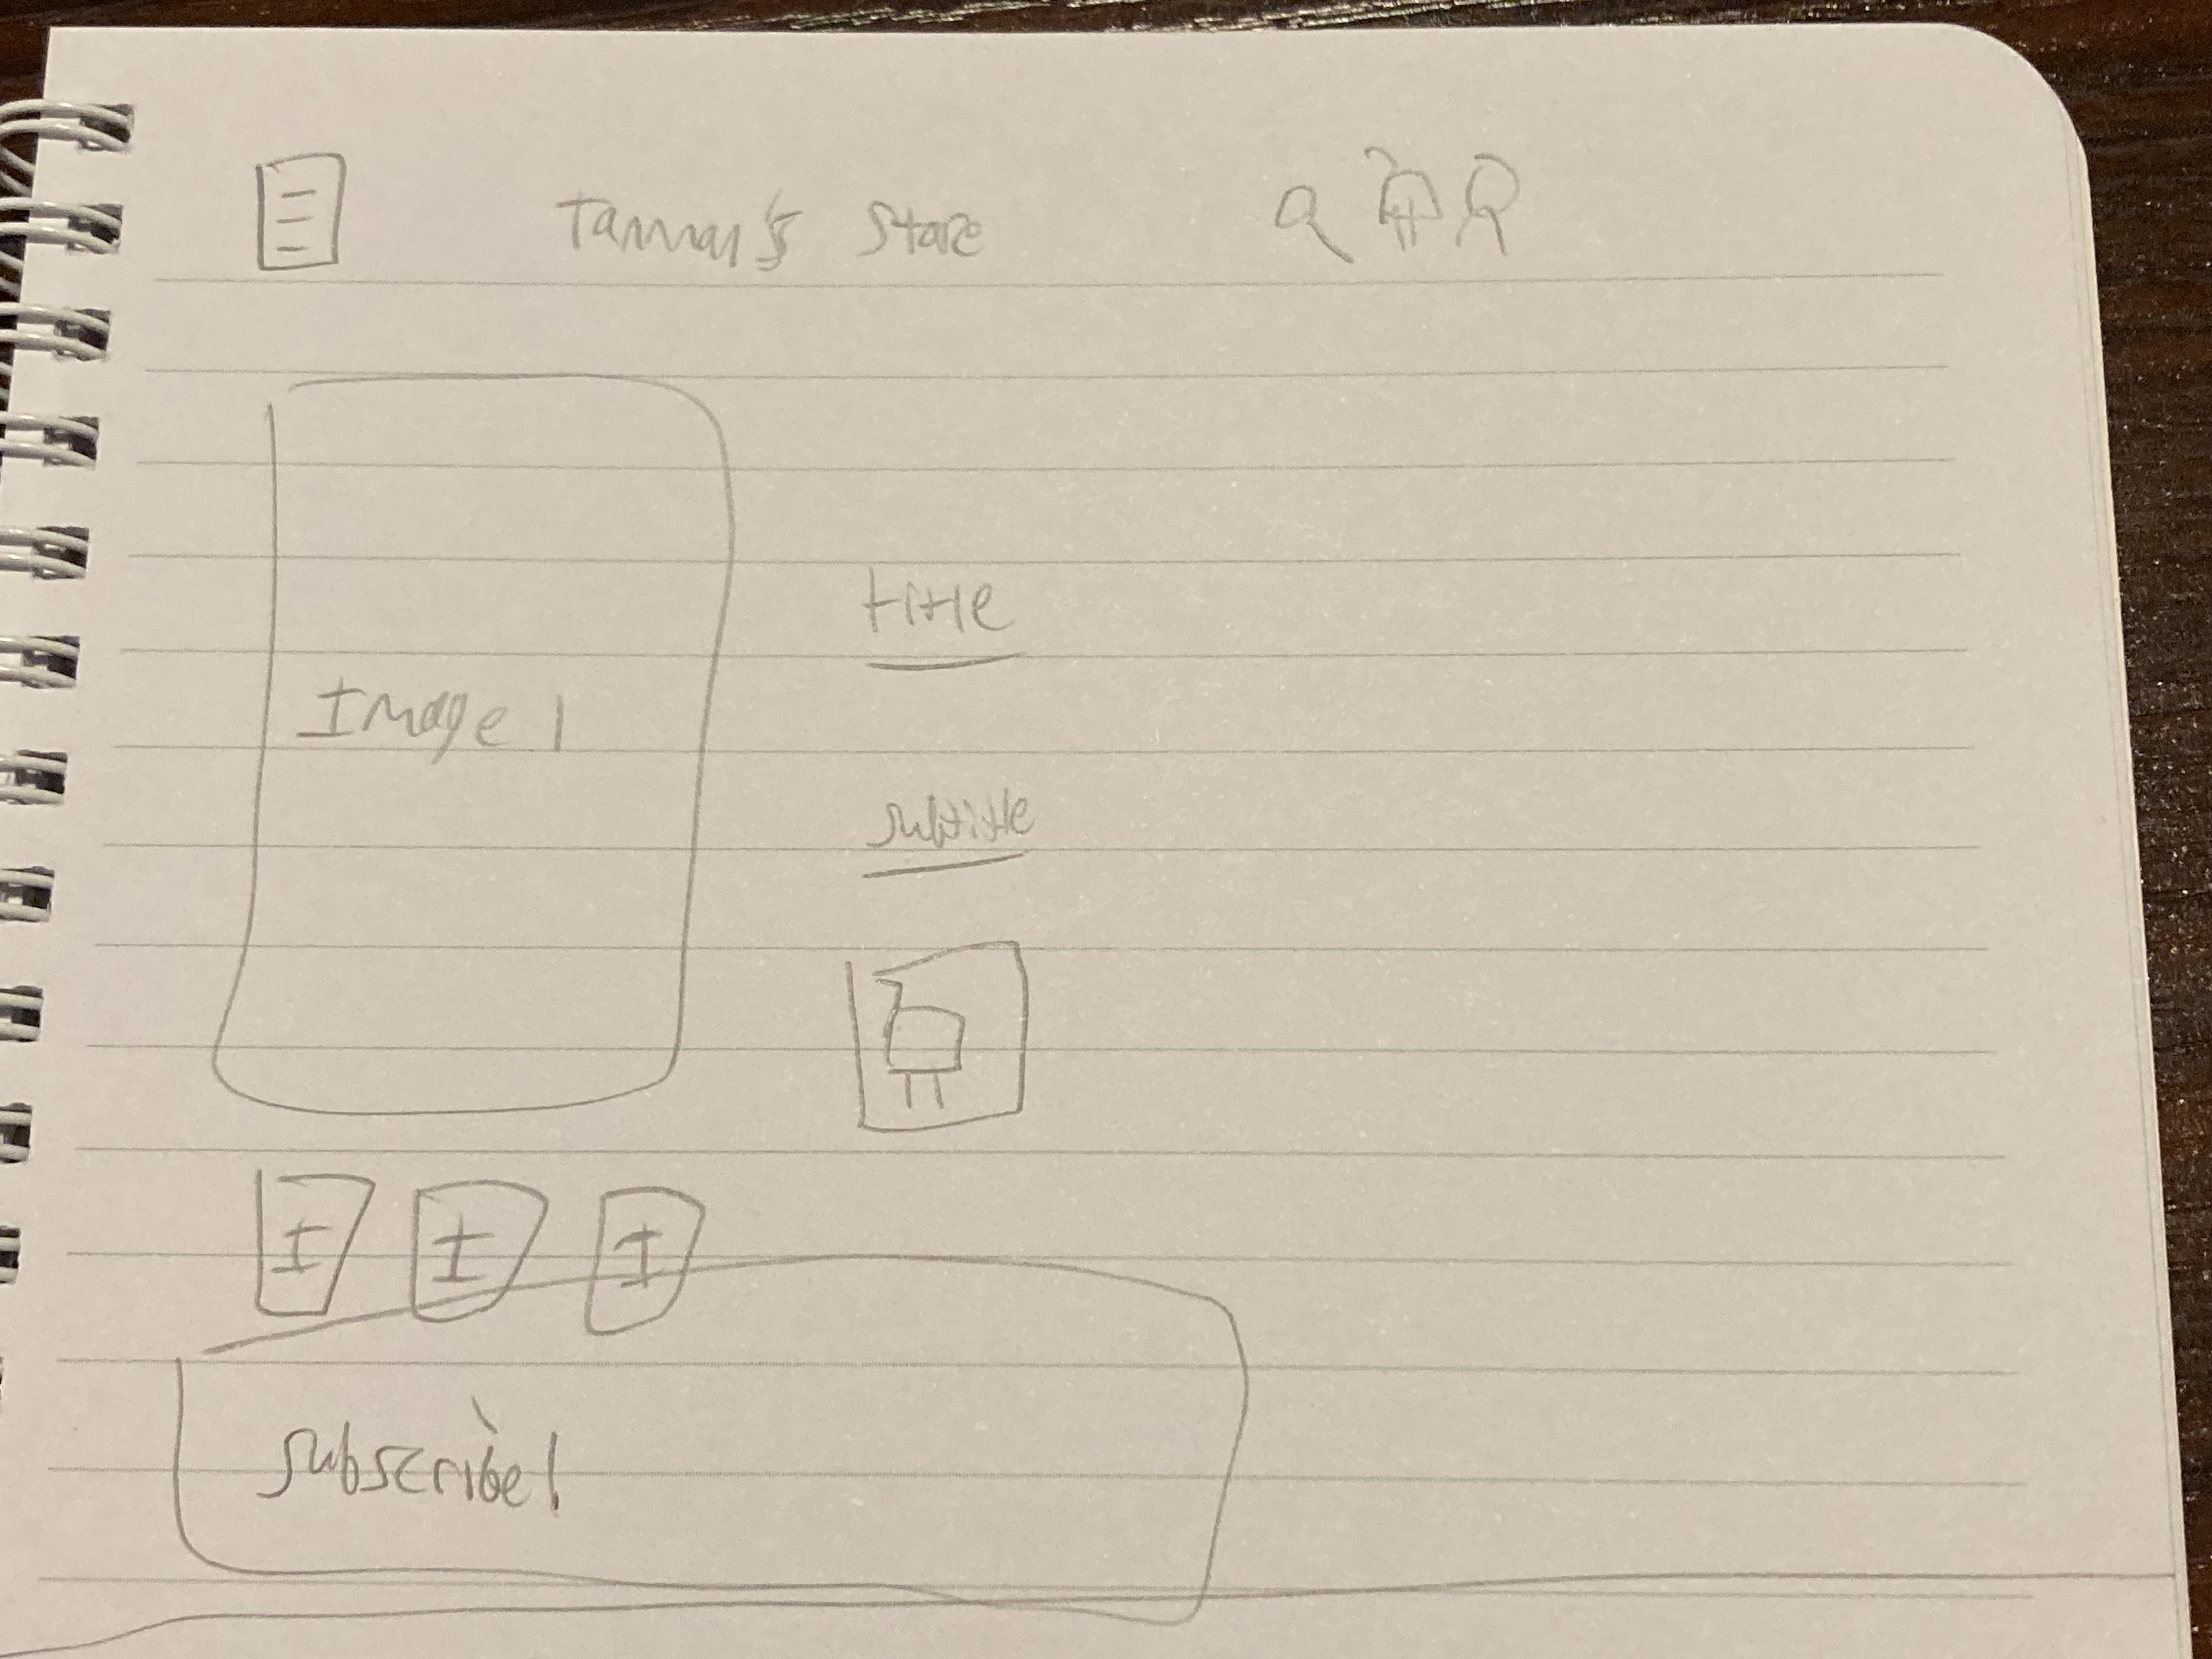 Tanmay's Store
Image 1
title
subtitle
I I I
Subscribe!